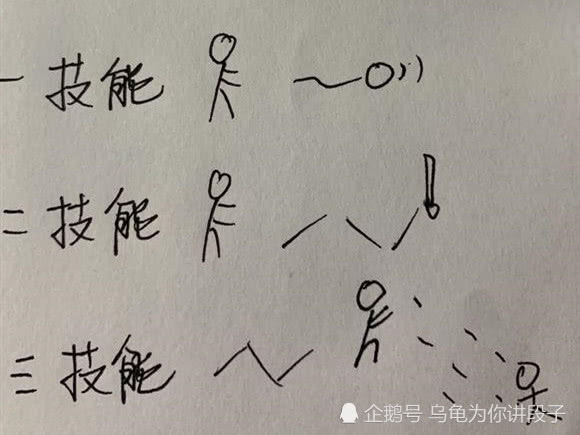 一技能
二技能
三技能
企鹅号 乌龟为你讲段子